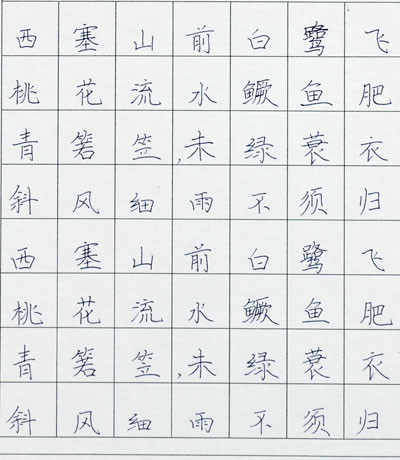 西塞山前白鹭飞
桃花流水鳜鱼肥
青箬笠,未绿蓑衣
斜风细雨不须归
西塞山前白鹭飞
桃花流水鳜鱼肥
青箬笠,未绿蓑衣
斜风细雨不须归